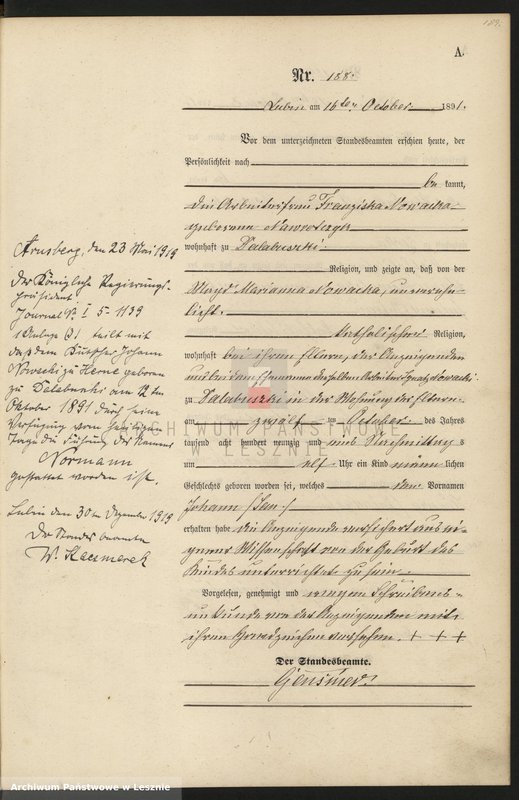 189.
A.
Nr. 188.
Lubin am 16ten October 1891.
Vor dem unterzeichneten Standesbeamten erschien heute, der
Persönlichkeit nach
be kannt,
die Arbeiterfrau Franziska Nowacka
geborene Nawrotzyk
wohnhaft zu Talabuszki
Religion, und zeigte an, daß von der
Magd Marianna Nowacka, unvereh-
licht.
katholischer Religion,
wohnhaft bei ihren Eltern, der Anzeigenden
und Ehemannes desselben Arbeiter Ignatz Nowacki
zu Talabuszki in der Wohnung der Eltern
am zwölf ten October des Jahres
tausend acht hundert neunzig und eins Nachmittag s
um elf Uhr ein Kind männ lichen
Geschlechts geboren worden sei, welches den Vornamen
Johann
erhalten habe die Anzeigende versichert aus ei-
gener Wissenschaft von der Geburt des
Kindes unterrichtet zu sein.
Vorgelesen, genehmigt und wegen Schreibens-
unkunde von der Anzeigenden mit
ihren Handzeichen versehen. + + +
Der Standesbeamte.
Gensmer
Arnsberg, den 23 Mai 1919
Der Königliche Regierungs-
präsident
Journal № I 5- 1139
teilt mit
daß dem Kutscher Johann
Nowacki zu Herne geboren
zu Talabuszki am 12 ten
Oktober 1891 durch seine
Verfügung vom heutigen
Tage die Führung des Namens
Normann
gestattet worden ist.
Lubin den 30ten Dezember 1919
Der Standesbeamte
W. Kaczmarek
ARCHIWUM PAŃSTWOWE
W LESZNIE
Archiwum Państwowe w Lesznie